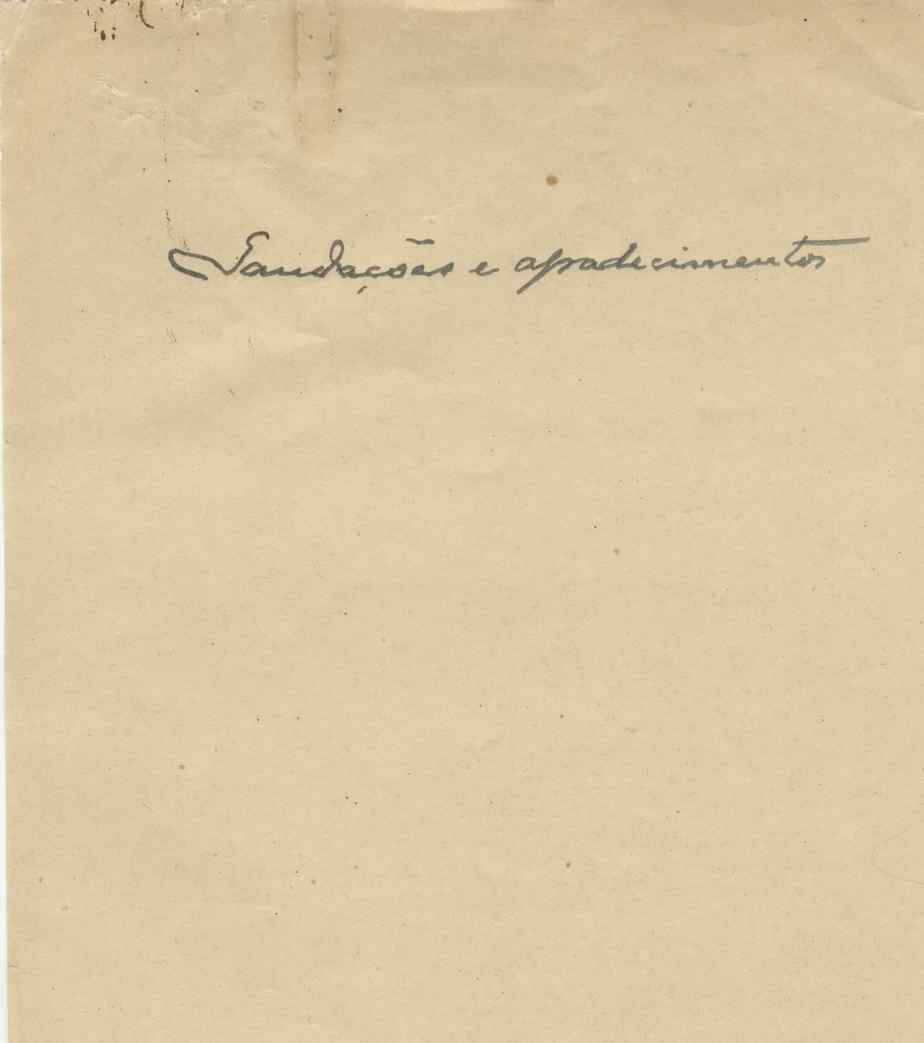 Saudações e agradecimentos